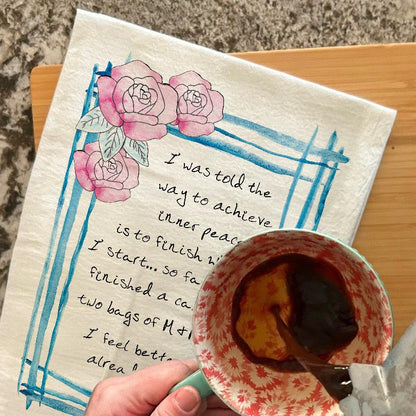 I was told the
way to achieve
inner peace
is to finish
I start... so fa
finished a ca
two bags of M &
I feel bette
alrea